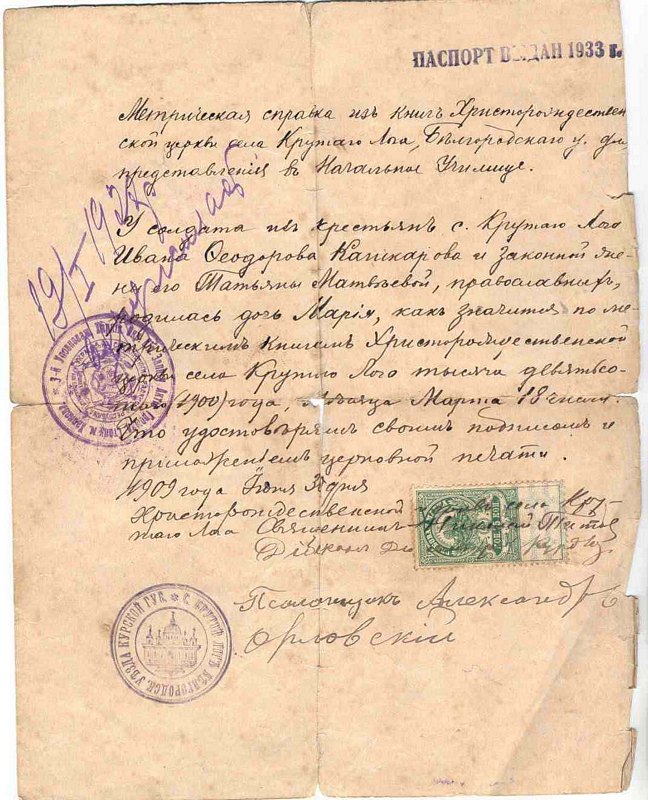 ПАСПОРТ ВЫДАН 1933 г.
Метрическая справка изъ книгъ Христорождествен
ской церкви села Крутаго Лога, Бѣлгородскаго у. для
представленія въ Начальное Училище.
У солдата изъ крестьянъ с. Крутаго Лога
Ивана Ѳеодорова Кашкарова и законной же-
ны его Татьяны Матвѣевой, православныхъ,
родилась дочь Марія, какъ значится по ме-
трическимъ книгамъ Христорождественской
церкви села Крутаго Лога тысяча девятьсо-
таго (1900) года, мѣсяца Марта 18 числа.
Это удостовѣряемъ своимъ подписомъ и
приложеніемъ церковной печати.
1909 года Іюня дня
Христорождественской церкви села Кру-
таго Лога Священникъ
Діаконъ
Псаломщикъ Александръ
Орловскій
19/I
С. КРУТОЙ ЛОГЪ БѢЛГОРОДСК. УѢЗДА КУРСКОЙ ГУБ.